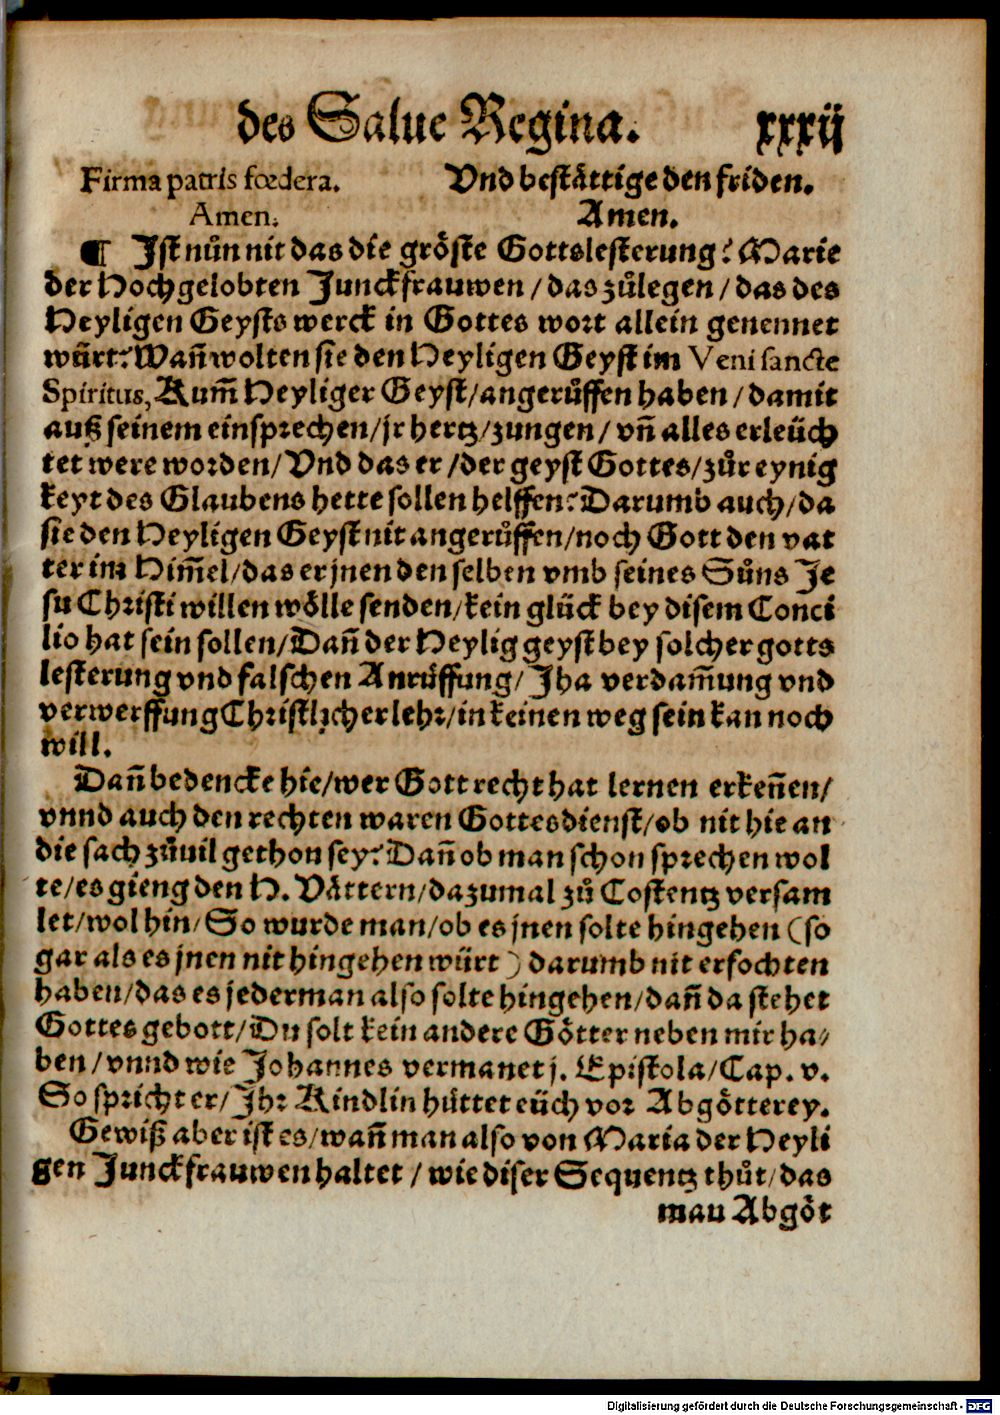 des Salue Regina. xxxij
Firma patris fœdera. Vnd bestättige den friden.
Amen. Amen.
¶ Jst nůn nit das die gröste Gottslesterung? Marie
der Hochgelobten Junckfrauwen / das zůlegen / das des
Heyligen Geysts werck in Gottes wort allein genennet
würt? Wañ wolten sie den Heyligen Geyst im Veni sancte
Spiritus, Kum̃ Heyliger Geyst / angerůffen haben / damit
auß seinem einsprechen / jr hertz / zungen / vñ alles erleüch
tet were worden / Vnd das er / der geyst Gottes / zůr eynig
keyt des Glaubens hette sollen helffen? Darumb auch / da
sie den Heyligen Geyst nit angerůffen / noch Gott den vat
ter im Him̃el / das er jnen den selben vmb seines Sůns Je
su Christi willen wölle senden / kein glück bey disem Conci
lio hat sein sollen / Dañ der Heylig geyst bey solcher gotts
lesterung vnd falschen Anrůffung / Jha verdam̃ung vnd
verwerffung Christlicher lehr / in keinen weg sein kan noch
will.
Dañ bedencke hie / wer Gott recht hat lernen erkeñen /
vnnd auch den rechten waren Gottesdienst / ob nit hie an
die sach zůuil gethon sey? Dañ ob man schon sprechen wol
te / es gieng den H. Vättern / dazumal zů Costentz versam
let / wol hin / So wurde man / ob es jnen solte hingehen (so
gar als es jnen nit hingehen würt) darumb nit erfochten
haben / das es jederman also solte hingehen / dañ da stehet
Gottes gebott / Du solt kein andere Götter neben mir ha⸗
ben / vnnd wie Johannes vermanet j. Epistola / Cap. v.
So spricht er / Jhr Kindlin hüttet eüch vor Abgötterey.
Gewiß aber ist es / wañ man also von Maria der Heyli
gen Junckfrauwen haltet / wie diser Sequentz thůt / das
mau Abgöt
Digitalisierung gefördert durch die Deutsche Forschungsgemeinschaft - DFG